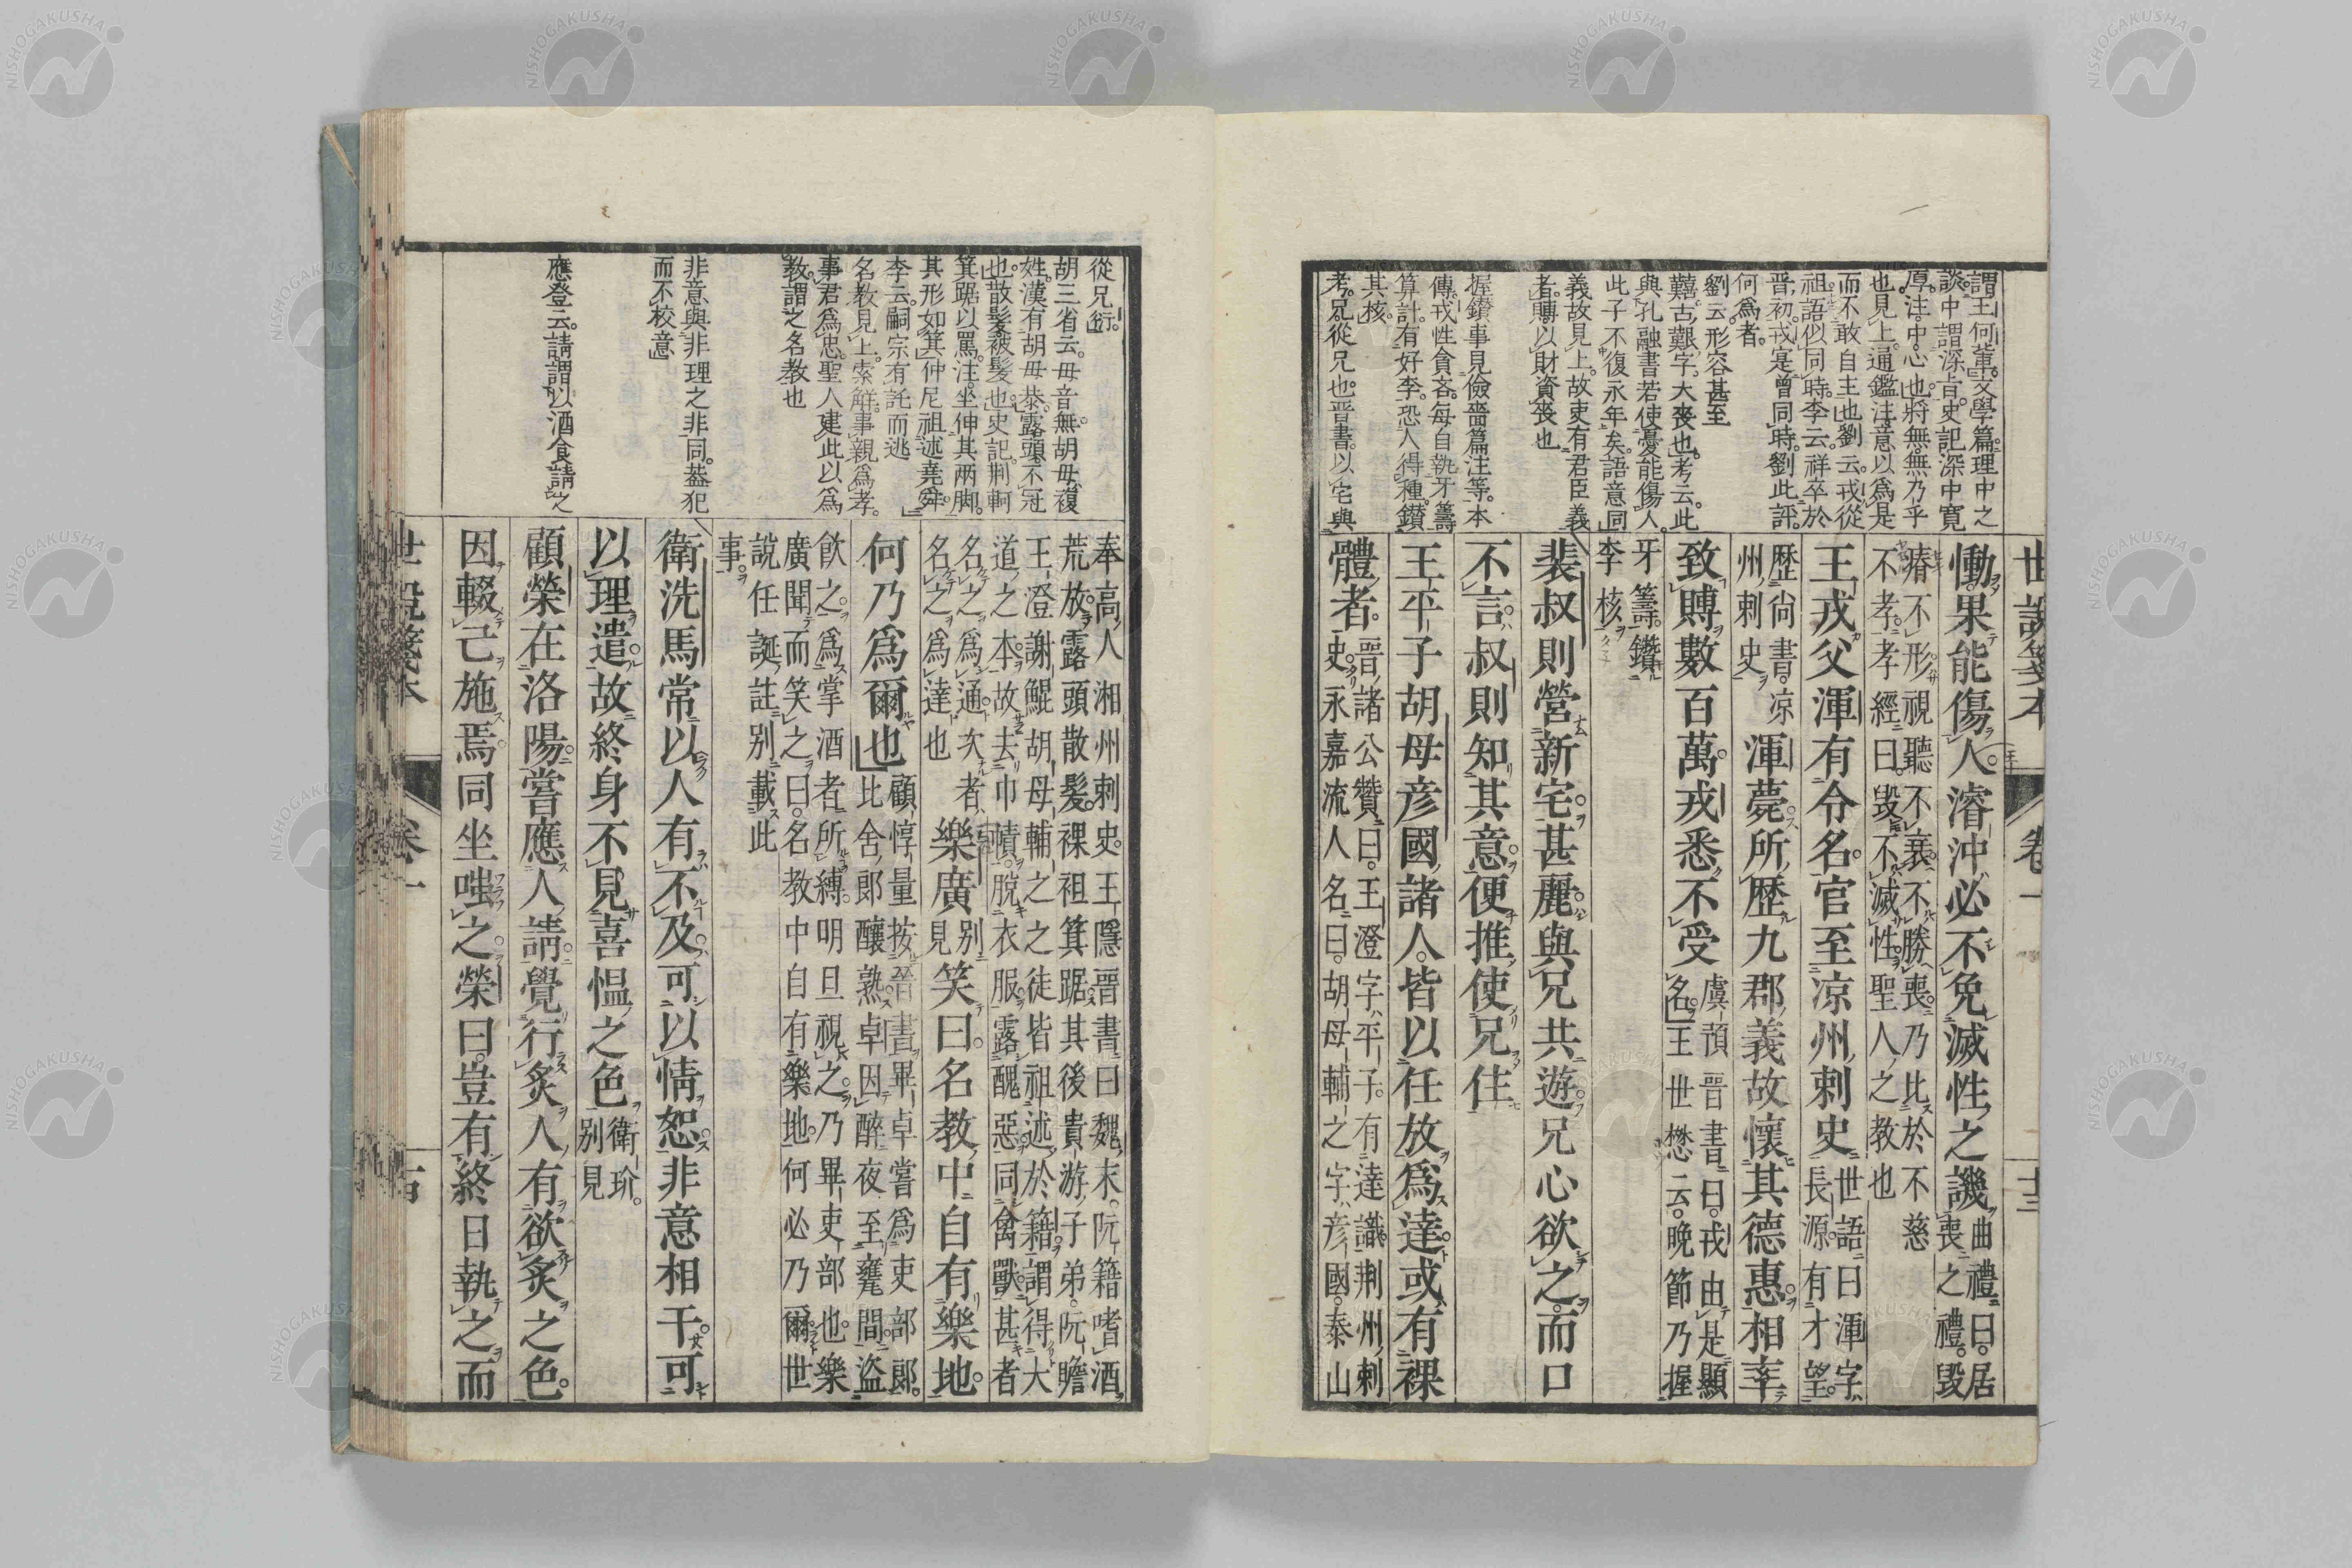 謂王何輩文學篇理中之
談中謂深旨史記深中寬
厚注中心也將無無乃乎
也見上通鑑注意以爲是
而不敢自主也劉云戎從
祖語似同時李云祥卒於
晋初戎寔曾同時劉此評
何爲者
劉云形容甚至
囏古艱字大喪也考云此
與孔融書若使憂能傷人
此子不復永年矣語意同
義故見上故吏有君臣義
者賻以財資喪也
握鑚事見儉嗇篇注等本
傳戎性貪吝每自執牙籌
算計有好李恐人得種鑚
其核
考兄從兄也晋書以宅與
世說箋本 卷一 十三
慟果能傷人濬沖必不免滅性之譏曲禮曰居
喪之禮毀
瘠不形視聽不衰不勝喪乃比於不慈
不孝孝經曰毀不滅性聖人之教也
王戎父渾有令名官至涼州刺史世語曰渾字
長源有才望
歷尚書涼
州刺史渾薨所歷九郡義故懷其德惠相率
致賻數百萬戎悉不受虞預晉書曰戎由是顯
名王世懋云晚節乃握
牙籌鑽
李核
裴叔則營新宅甚麗與兄共遊兄心欲之而口
不言叔則知其意便推使兄住
王平子胡母彥國諸人皆以任放爲達或有裸
體者晉諸公贊曰王澄字平子有達識荆州刺
史永嘉流人名曰胡母輔之字彥國泰山
從兄衍
胡三省云毋音無胡毋複
姓漢有胡毋恭露頭不冠
也散髮被髮也史記荆軻
箕踞以罵注坐伸其兩脚
其形如箕仲尼祖述堯舜
李云嗣宗有託而逃
名教見上索解事親爲孝
事君爲忠聖人建此以爲
教謂之名教也
非意與非理之非同蓋犯
而不校意
應登云請謂以酒食請之
奉高人湘州刺史王隱晉書曰魏末阮籍嗜酒
荒放露頭散髮裸祖箕踞其後貴游子弟阮瞻
王澄謝鯤胡母輔之之徒皆祖述於籍謂得大
道之本故去巾幘脫衣服露醜惡同禽獸甚者
名之爲通次者
名之爲達也樂廣別
見笑曰名教中自有樂地
何乃爲爾也顧惇量按晉書畢卓嘗爲吏部郎
比舍郎釀熟卓因醉夜至甕間盜
飲之爲掌酒者所縛明旦視之乃畢吏部也樂
廣聞而笑之曰名教中自有樂地何必乃爾世
說任誕註別載此
事
衛洗馬常以人有不及可以情恕非意相干可
以理遣故終身不見喜慍之色衛玠
別見
顧榮在洛陽嘗應人請覺行炙人有欲炙之色
因輟己施焉同坐嗤之榮曰豈有終日執之而
世說箋本 卷一